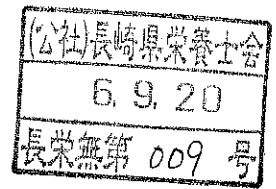 (公社)長崎県栄養士会
6. 9. 20
長栄無第 009 号